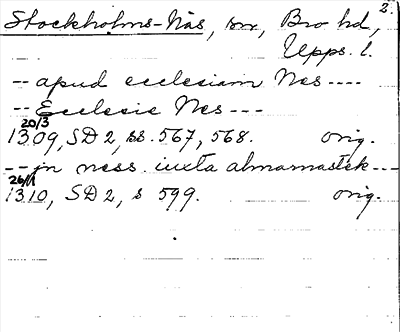 2.
Stockholms-Näs, sn, Bro hd,
Upps. l.
-- apud ecclesiam Nes ----
-- Ecclesie Nes ---
20/3
1309, SD 2, ss. 567, 568. orig.
-- in ness. iuxta almarnastek ---
26/1
1310, SD 2, s 599. orig.